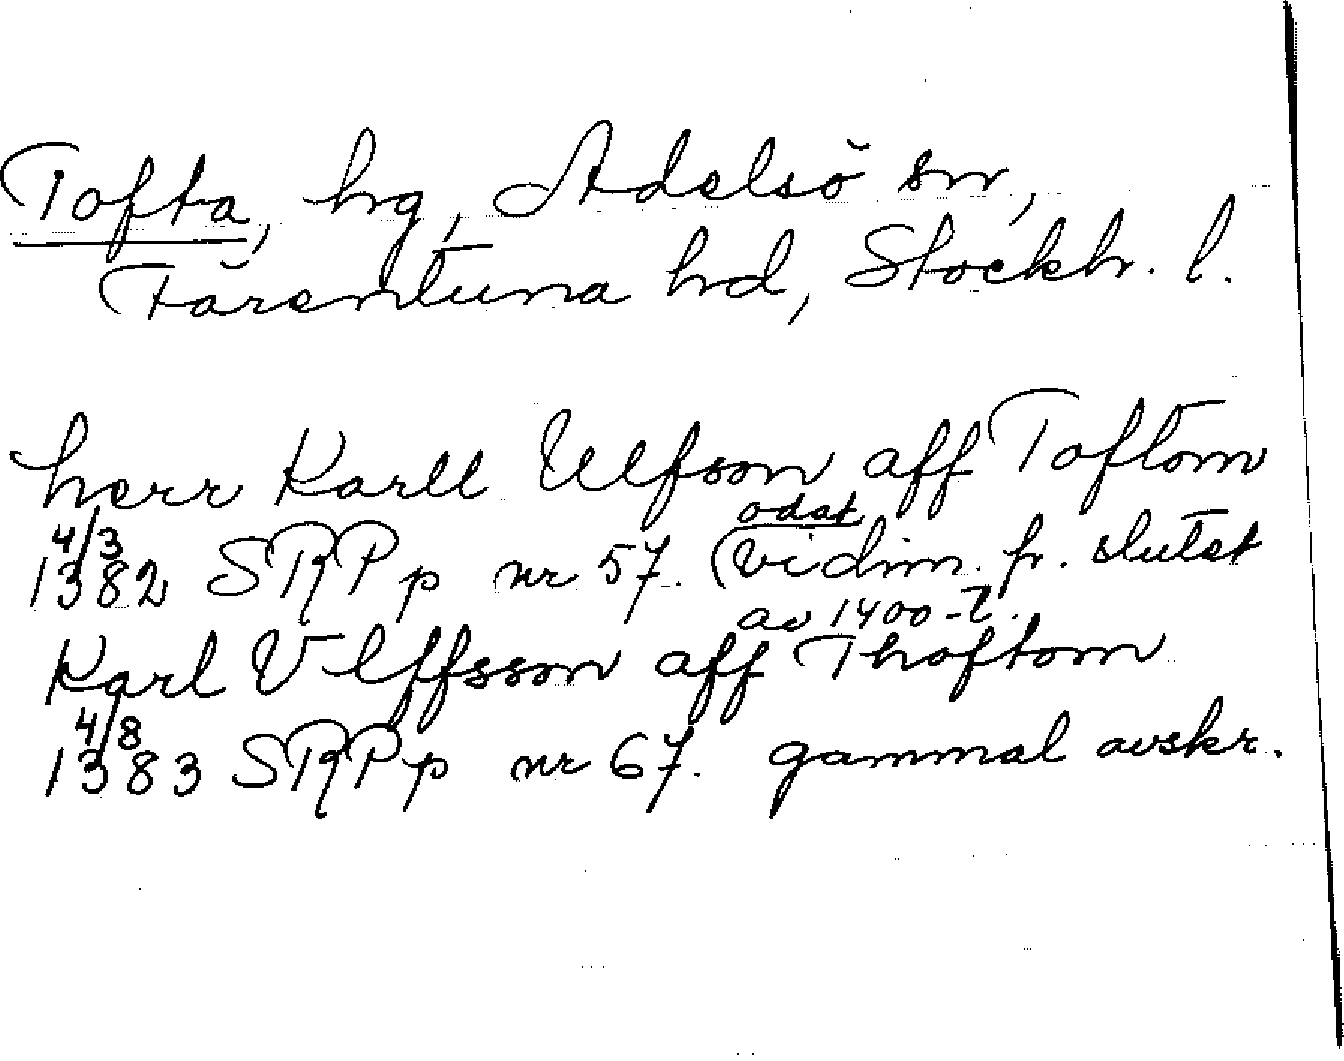 Tofta, hg, Adelsö sn,
Färentuna hd, Stockh. l.
herr Karll Ulfson aff Toftom
4/3 odat
1382 SRPp nr 57. (vidim. fr. slutet
av 1400-t.
Karl Vlffsson aff Thoftom
4/8
1383 SRPp nr 67. gammal avskr.